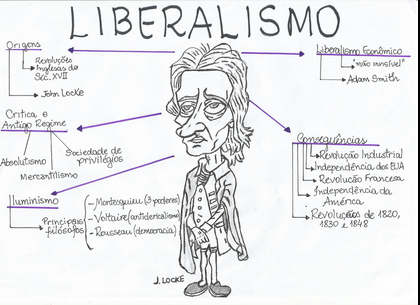 LIBERALISMO
Origens
Revoluções
Inglesas do
Séc. XVII
John Locke
Crítica o
Antigo Regime
Absolutismo
Mercantilismo
Sociedade de
privilégios
Iluminismo
Principais
filósofos
- Montesquieu (3 poderes)
- Voltaire (anticlericalismo)
- Rousseau (democracia)
J. LOCKE
Liberalismo Econômico
"mão invisível"
Adam Smith
Consequências
Revolução Industrial
Independência dos EUA
Revolução Francesa
Independência da
América
Revoluções de 1820,
1830 e 1848